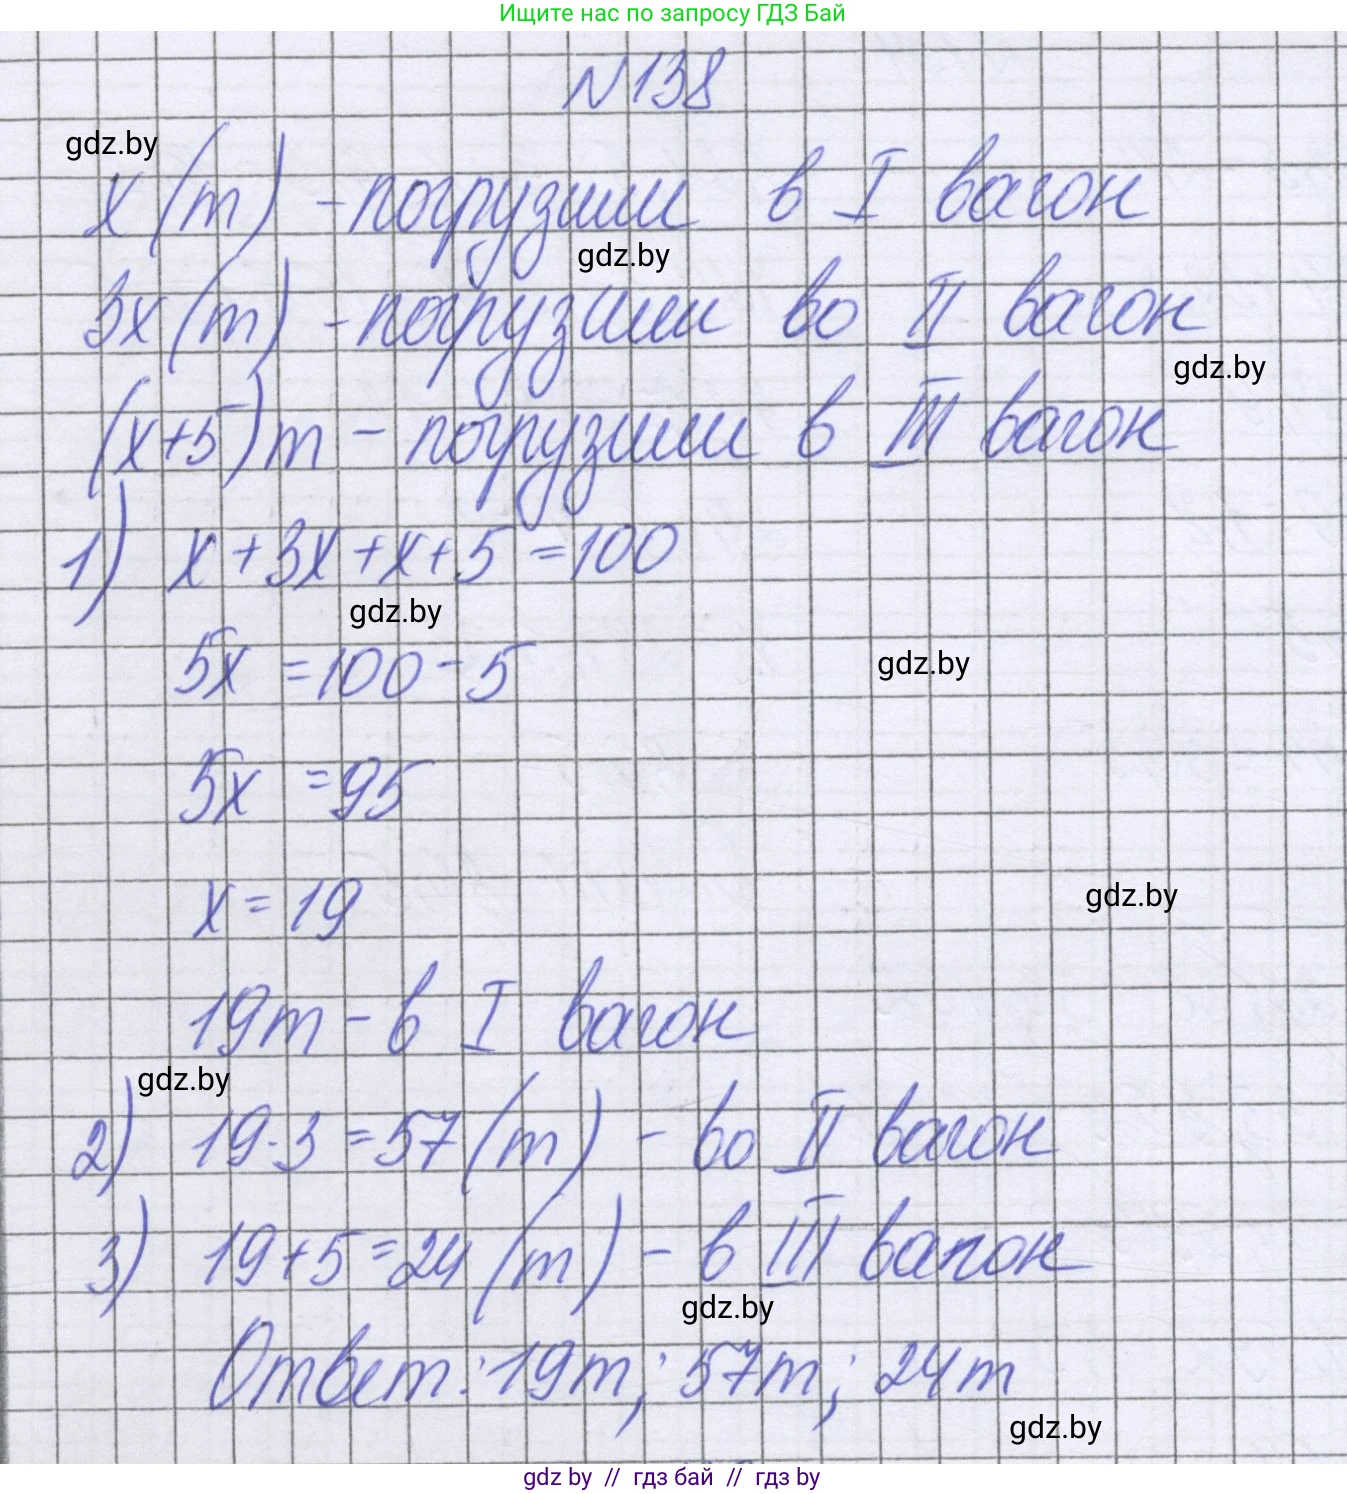 Ищите нас по запросу ГДЗ Бай
N 138
gdz.by
x (т) - погрузили в I вагон
gdz.by
3x (т) - погрузили во II вагон
gdz.by
(x+5) т - погрузили в III вагон
1) x + 3x + x + 5 = 100
gdz.by
5x = 100 - 5
gdz.by
5x = 95
x = 19
gdz.by
19т - в I вагон
gdz.by
2) 19·3 = 57 (т) - во II вагон
3) 19+5 = 24 (т) - в III вагон
gdz.by
Ответ: 19т; 57т; 24т
gdz.by
gdz by // гдз бай // гдз by